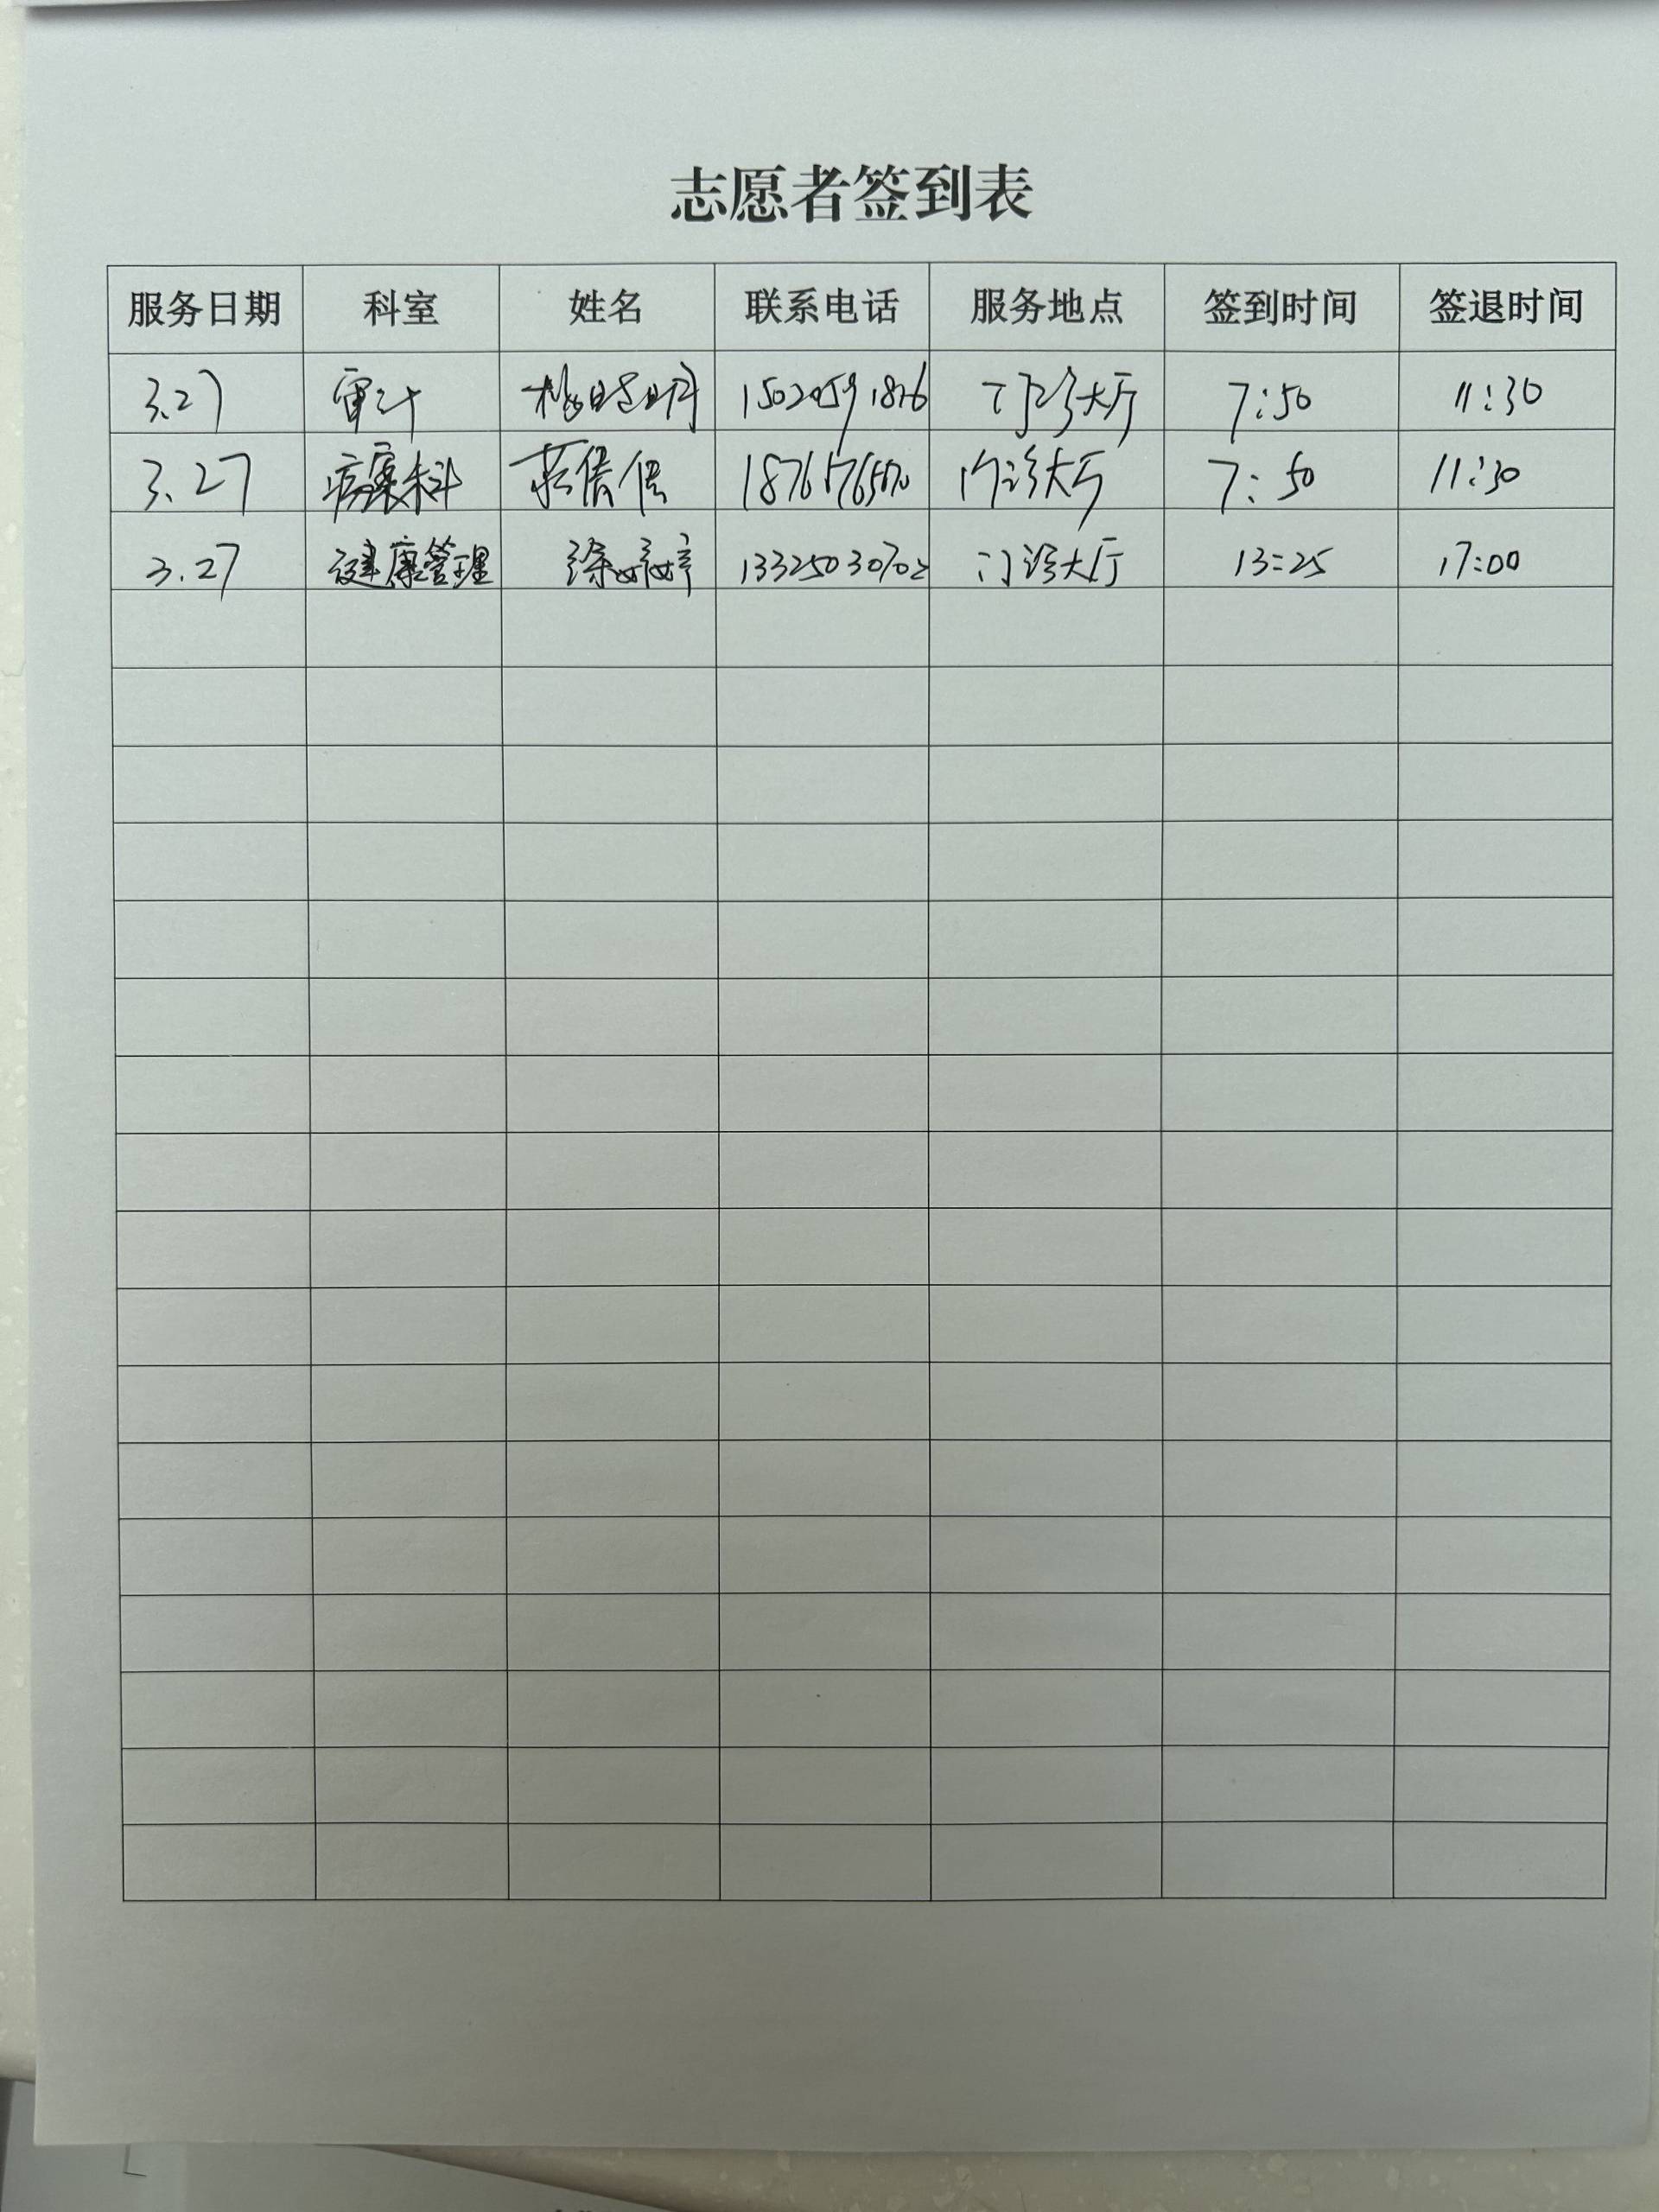 志愿者签到表
服务日期 科室 姓名 联系电话 服务地点 签到时间 签退时间
3.27 审计 门诊大厅 7:50 11:30
3.27 病案科 门诊大厅 7:50 11:30
3.27 健康管理 涂婷婷 13325030702 门诊大厅 13:25 17:00